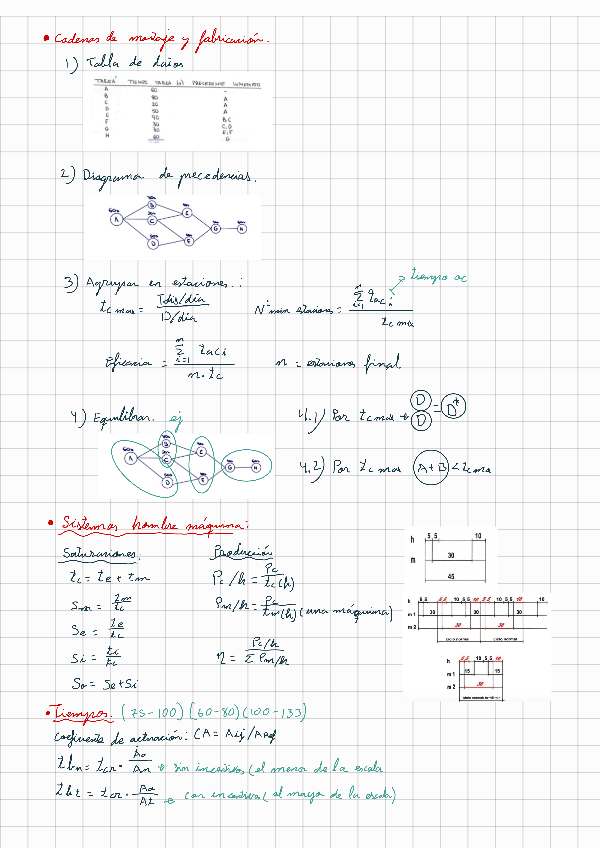 • Cadenas de montaje y fabricación.
1) Tabla de datos
TAREA TIEMPO TAREA (s) PRECEDENTE INMEDIATO
A 60 -
B 80 A
C 20 A
D 50 A
E 90 B,C
F 30 C,D
G 30 E,F
H 60 G
2) Diagrama de precedencias.
A B C D E F G H
3) Agrupar en estaciones.:
tc max = Tdis/día / D/día
Nº min estaciones = Σ i=1 n taci / tc max
tiempo ac
Eficacia = Σ i=1 n taci / n · tc
n = estaciones final.
4) Equilibrar. ej
4.1) Por tc max → D D = D*
A B C D E F G H
4.2) Por tc max (A+B) < tc max
• Sistemas hombre máquina:
Saturaciones:
Producción
tc = te + tm
Pc/h = Pc / tc(h)
Sm = tm / tc
Pm/h = Pc / tm(h) (una máquina)
Se = te / tc
Si = ti / tc
η = Pc/h / Σ Pm/h
So = Se + Si
h 5 5 10
m 30
45
h
m 1 30 30 30
m 2 30 30
ciclo normal ciclo normal
h 5,5 10 5 5 10
m 1 15 15
m 2 30
• Tiempos. (75-100) (60-80) (100-133)
Coeficiente de actuación: CA = Aij / Aref
tbn = tcr · Ao / An → sin incentivos (el menor de la escala
tbt = tcr · Ao / At → con incentivos (el mayor de la escala)